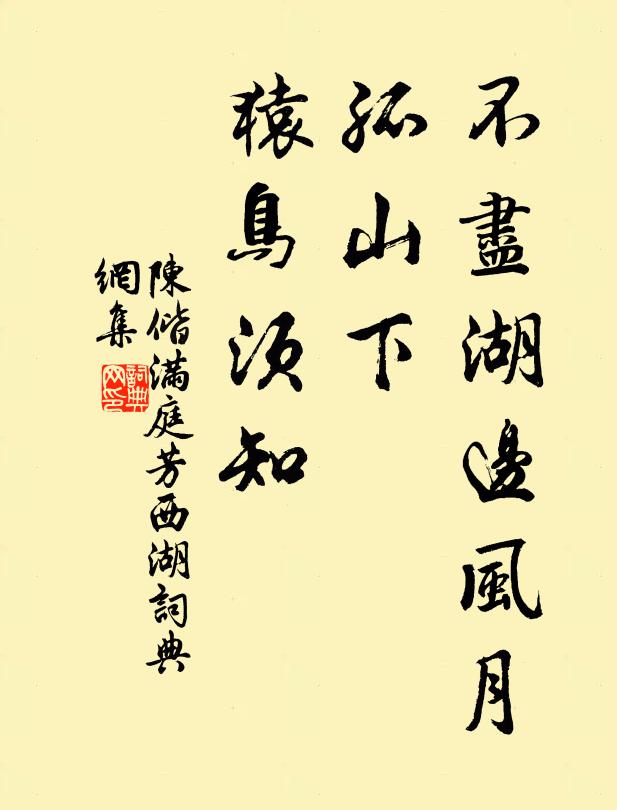 不盡湖邊風月
孤山下
猿鳥須知
陳偕滿庭芳西湖詞典
網集
詞典網印